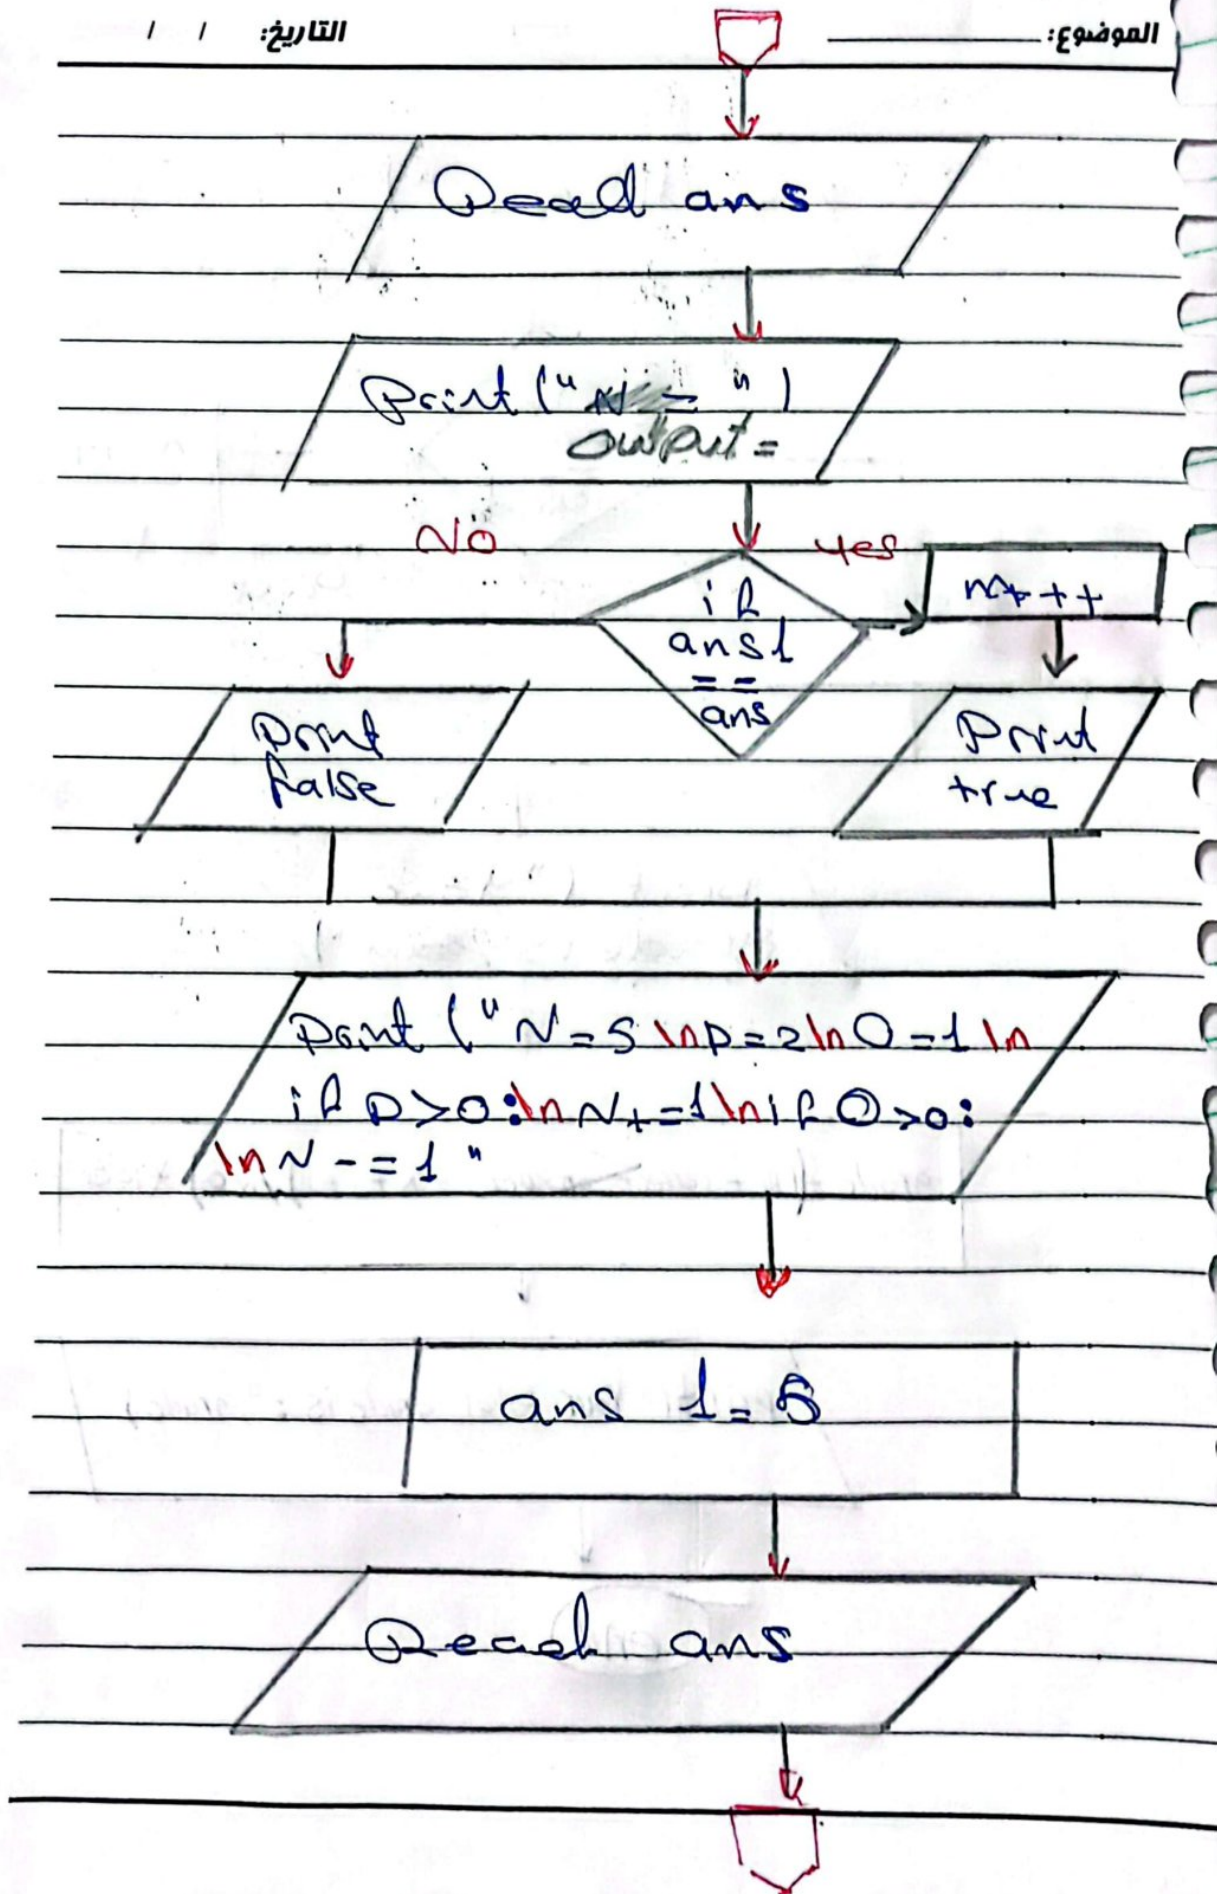 الموضوع: التاريخ: / /
Read ans
Print (" N = ")
output =
No
yes
if
ans1
==
ans
m+++
Print
false
Print
true
Print (" N = 5 \n P = 2 \n O = 1 \n
if P > 0 : \n N + = 1 \n if O > 0 :
\n N - = 1 "
ans 1 =
Read ans